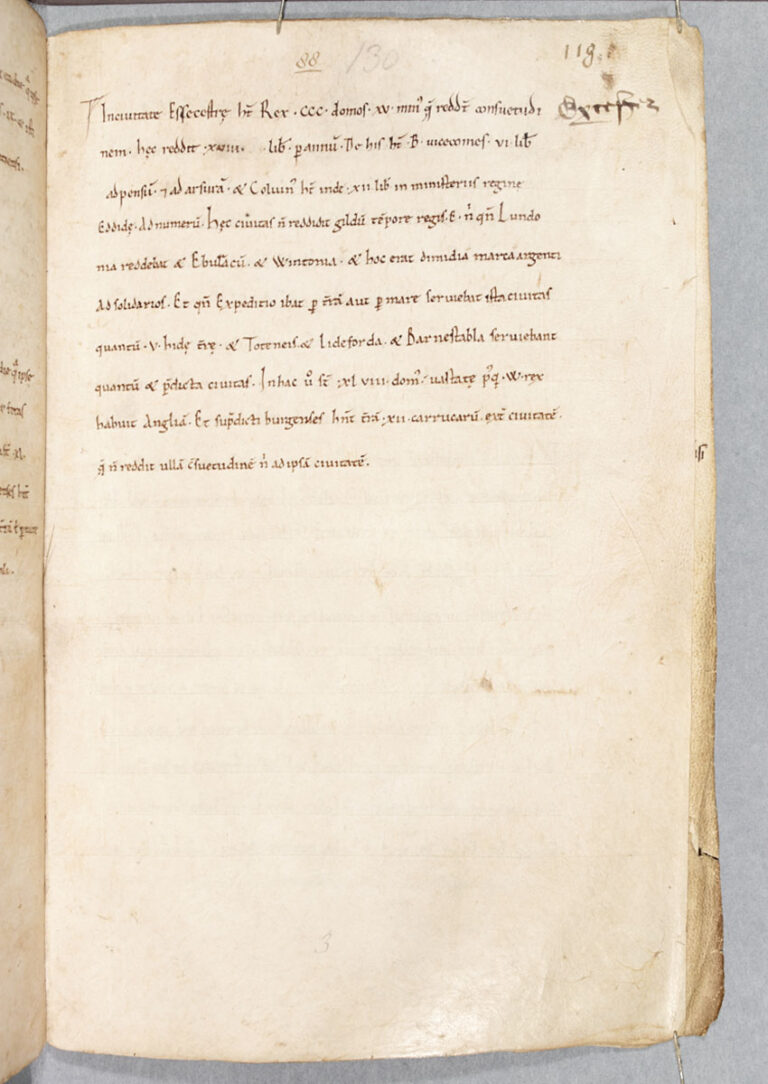 88 130 119.
Inciuitate Essecestrę ht̄ Rex ·ccc· domos· xv· min᷒ q̨ redd̄t consuetudi Exxcester
nem· hęc reddit ·xviii· lib̄· p annū· De his ht̄ ·B· uicecomes· vi· lib̄
ad pensū· ⁊ ad arsurā· & Coluin᷒ ht̄ inde ·xii lib̄ in ministeriis regine
Eddidę· Ad numerū· hęc ciuitas n̄ reddidit gildū tēpore regis·E· n̄ qn̄ Lundo
nia reddebat & Ebulacū· & Wintonia· & hoc erat dimidia marca argenti
Ad solidarios· Et qn̄ Expeditio ibat p tr̄ā aut p mare seruiebat ista ciuitas
quantū· v· hidę tr̄ę· & Toteneis & Lideforda· & Barnestabla seruiebant
quantū & p̄dicta ciuitas· In hac ů st̄ ·xl viii· dom᷒· uastatę p᷒q̨· W· rex
habuit Angliā· Et sup̄dicti burgenses hn̄t tr̄ā ·xii· carrucarū· ext̄ ciuitatē·
q̨ n̄ reddit ullā c̄suetudinē n̄ ad ipsā ciuitatē·
3